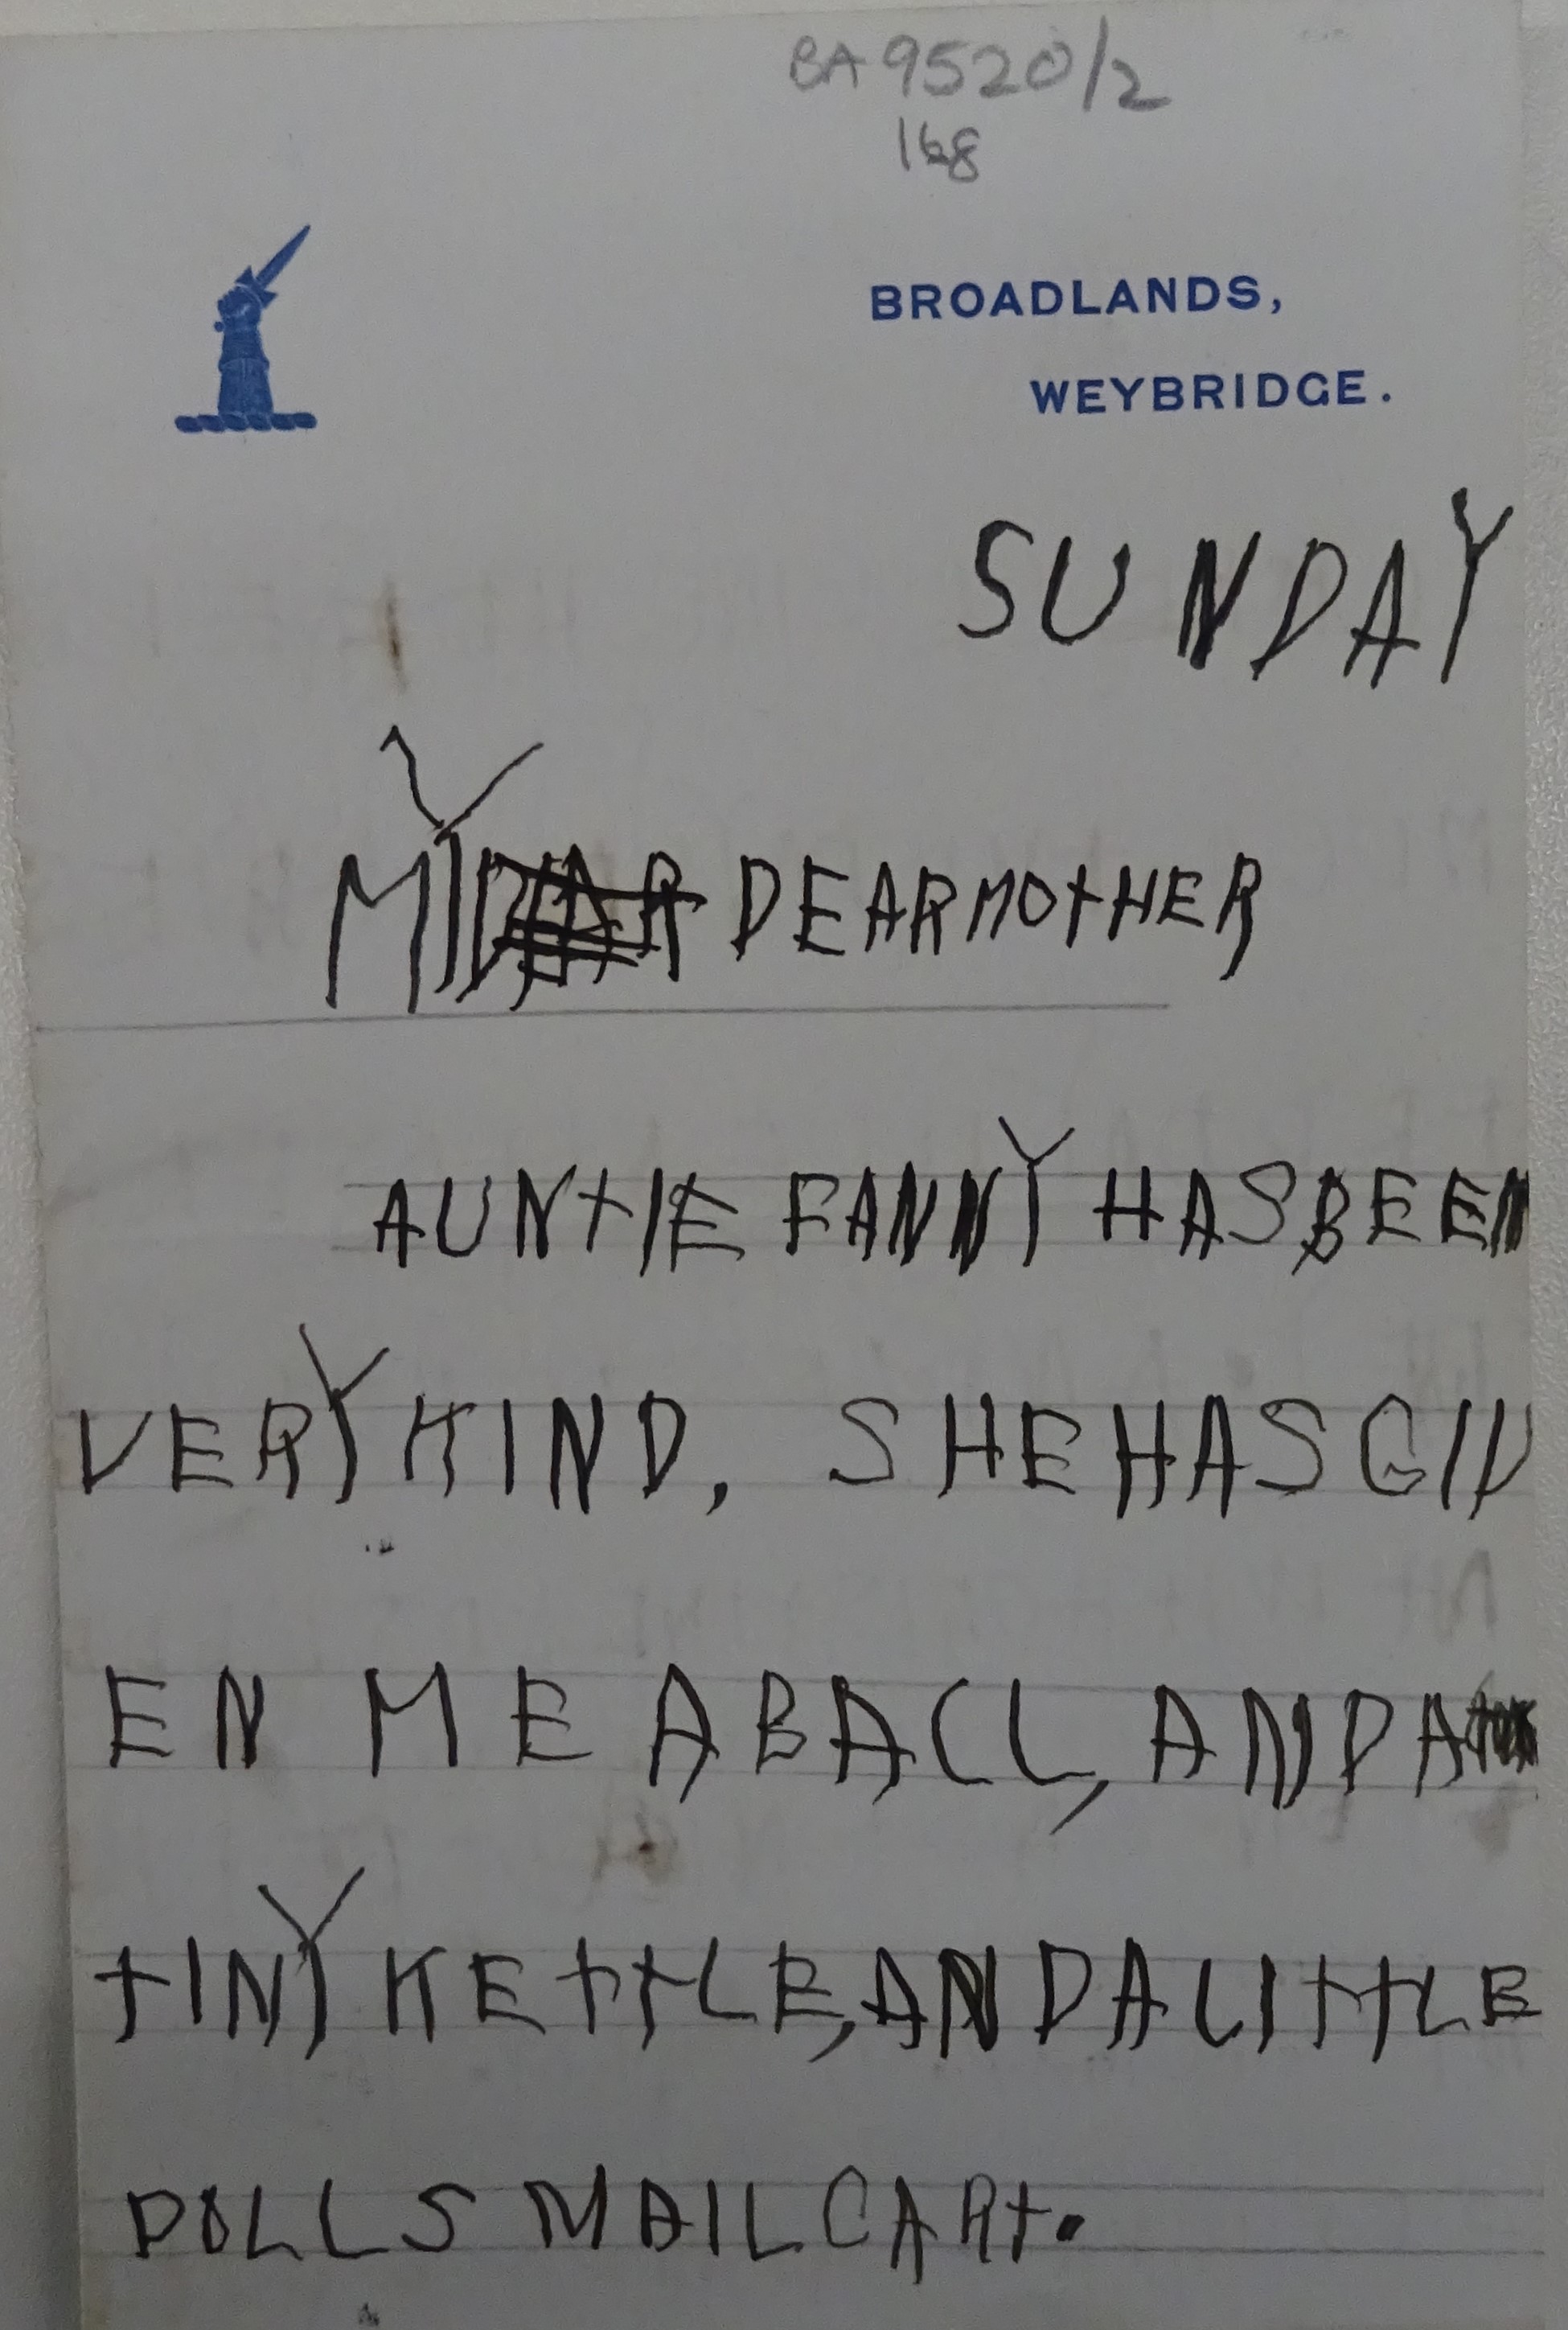 BA 9520/2
168
BROADLANDS,
WEYBRIDGE.
SUNDAY
MY DEAR DEAR MOTHER
AUNTIE FANNY HAS BEEN
VERY KIND, SHE HAS GIV
EN ME A BALL, AND A
TINY KETTLE, AND A LITTLE
DOLLS MAIL CART.